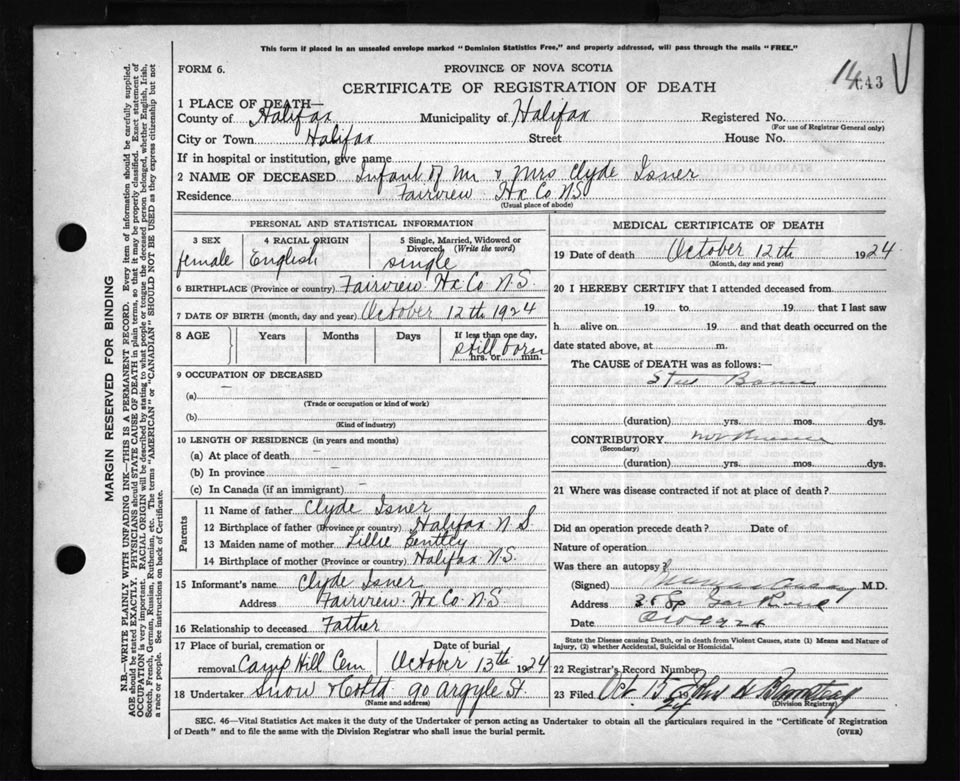 This form if placed in an unsealed envelope marked "Dominion Statistics Free," and properly addressed, will pass through the mails "FREE."
FORM 6.
PROVINCE OF NOVA SCOTIA
CERTIFICATE OF REGISTRATION OF DEATH
1 PLACE OF DEATH—
County of Halifax Municipality of Halifax Registered No.
(For use of Registrar General only)
City or Town Halifax Street House No.
If in hospital or institution, give name
2 NAME OF DECEASED Infant of Mr & Mrs Clyde Isner
Residence Fairview Hx Co N.S.
(Usual place of abode)
PERSONAL AND STATISTICAL INFORMATION
3 SEX female
4 RACIAL ORIGIN English
5 Single, Married, Widowed or Divorced (Write the word) single
6 BIRTHPLACE (Province or country) Fairview Hx Co N.S.
7 DATE OF BIRTH (month, day and year) October 12th 1924
8 AGE Years Months Days If less than one day, hrs. or min. still born
9 OCCUPATION OF DECEASED
(a) —
(Trade or occupation or kind of work)
(b)
(Kind of industry)
10 LENGTH OF RESIDENCE (in years and months)
(a) At place of death —
(b) In province —
(c) In Canada (if an immigrant) —
Parents
11 Name of father Clyde Isner
12 Birthplace of father (Province or country) Halifax N.S
13 Maiden name of mother Lillie Bentley
14 Birthplace of mother (Province or country) Halifax N.S.
15 Informant's name Clyde Isner
Address Fairview Hx Co N.S
16 Relationship to deceased Father
17 Place of burial, cremation or removal Camp Hill Cem
Date of burial October 13th 1924
18 Undertaker Snow & Co Ltd 90 Argyle St.
(Name and address)
MEDICAL CERTIFICATE OF DEATH
19 Date of death October 12th 1924
(Month, day and year)
20 I HEREBY CERTIFY that I attended deceased from
19 to 19 that I last saw
h alive on 19 and that death occurred on the
date stated above, at m.
The CAUSE of DEATH was as follows:—
Still Born
(duration) yrs. mos. dys.
CONTRIBUTORY
(Secondary)
(duration) yrs. mos. dys.
21 Where was disease contracted if not at place of death?
Did an operation precede death? Date of
Nature of operation
Was there an autopsy?
(Signed) M.D.
Address
Date
State the Disease causing Death, or in death from Violent Causes, state (1) Means and Nature of Injury, (2) whether Accidental, Suicidal or Homicidal.
22 Registrar's Record Number
23 Filed Oct 15 1924
(Division Registrar)
SEC. 46—Vital Statistics Act makes it the duty of the Undertaker or person acting as Undertaker to obtain all the particulars required in the "Certificate of Registration
of Death" and to file the same with the Division Registrar who shall issue the burial permit.
(OVER)
MARGIN RESERVED FOR BINDING
N.B.—WRITE PLAINLY WITH UNFADING INK—THIS IS A PERMANENT RECORD. Every item of information should be carefully supplied.
AGE should be stated EXACTLY. PHYSICIANS should STATE CAUSE OF DEATH in plain terms, so that it may be properly classified. Exact statement of
OCCUPATION is very important. RACIAL ORIGIN will be described by stating to what people or tongue the deceased person belonged, whether English, Irish,
Scotch, French, German, Russian, Ruthenian, etc. The terms "AMERICAN" or "CANADIAN" SHOULD NOT BE USED as they express citizenship but not
a race or people. See instructions on back of Certificate.